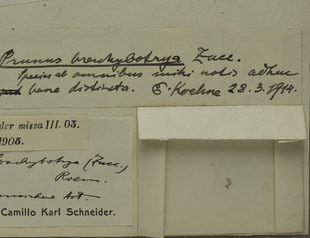 Prunus brachybotrya Zucc.
Species ab omnibus mihi notis adhuc
bene distincta. E. Koehne 23.3.1914.
der missa III. 05.
1905.
brachybotrya (Zucc.)
Roem.
Art.
Camillo Karl Schneider.